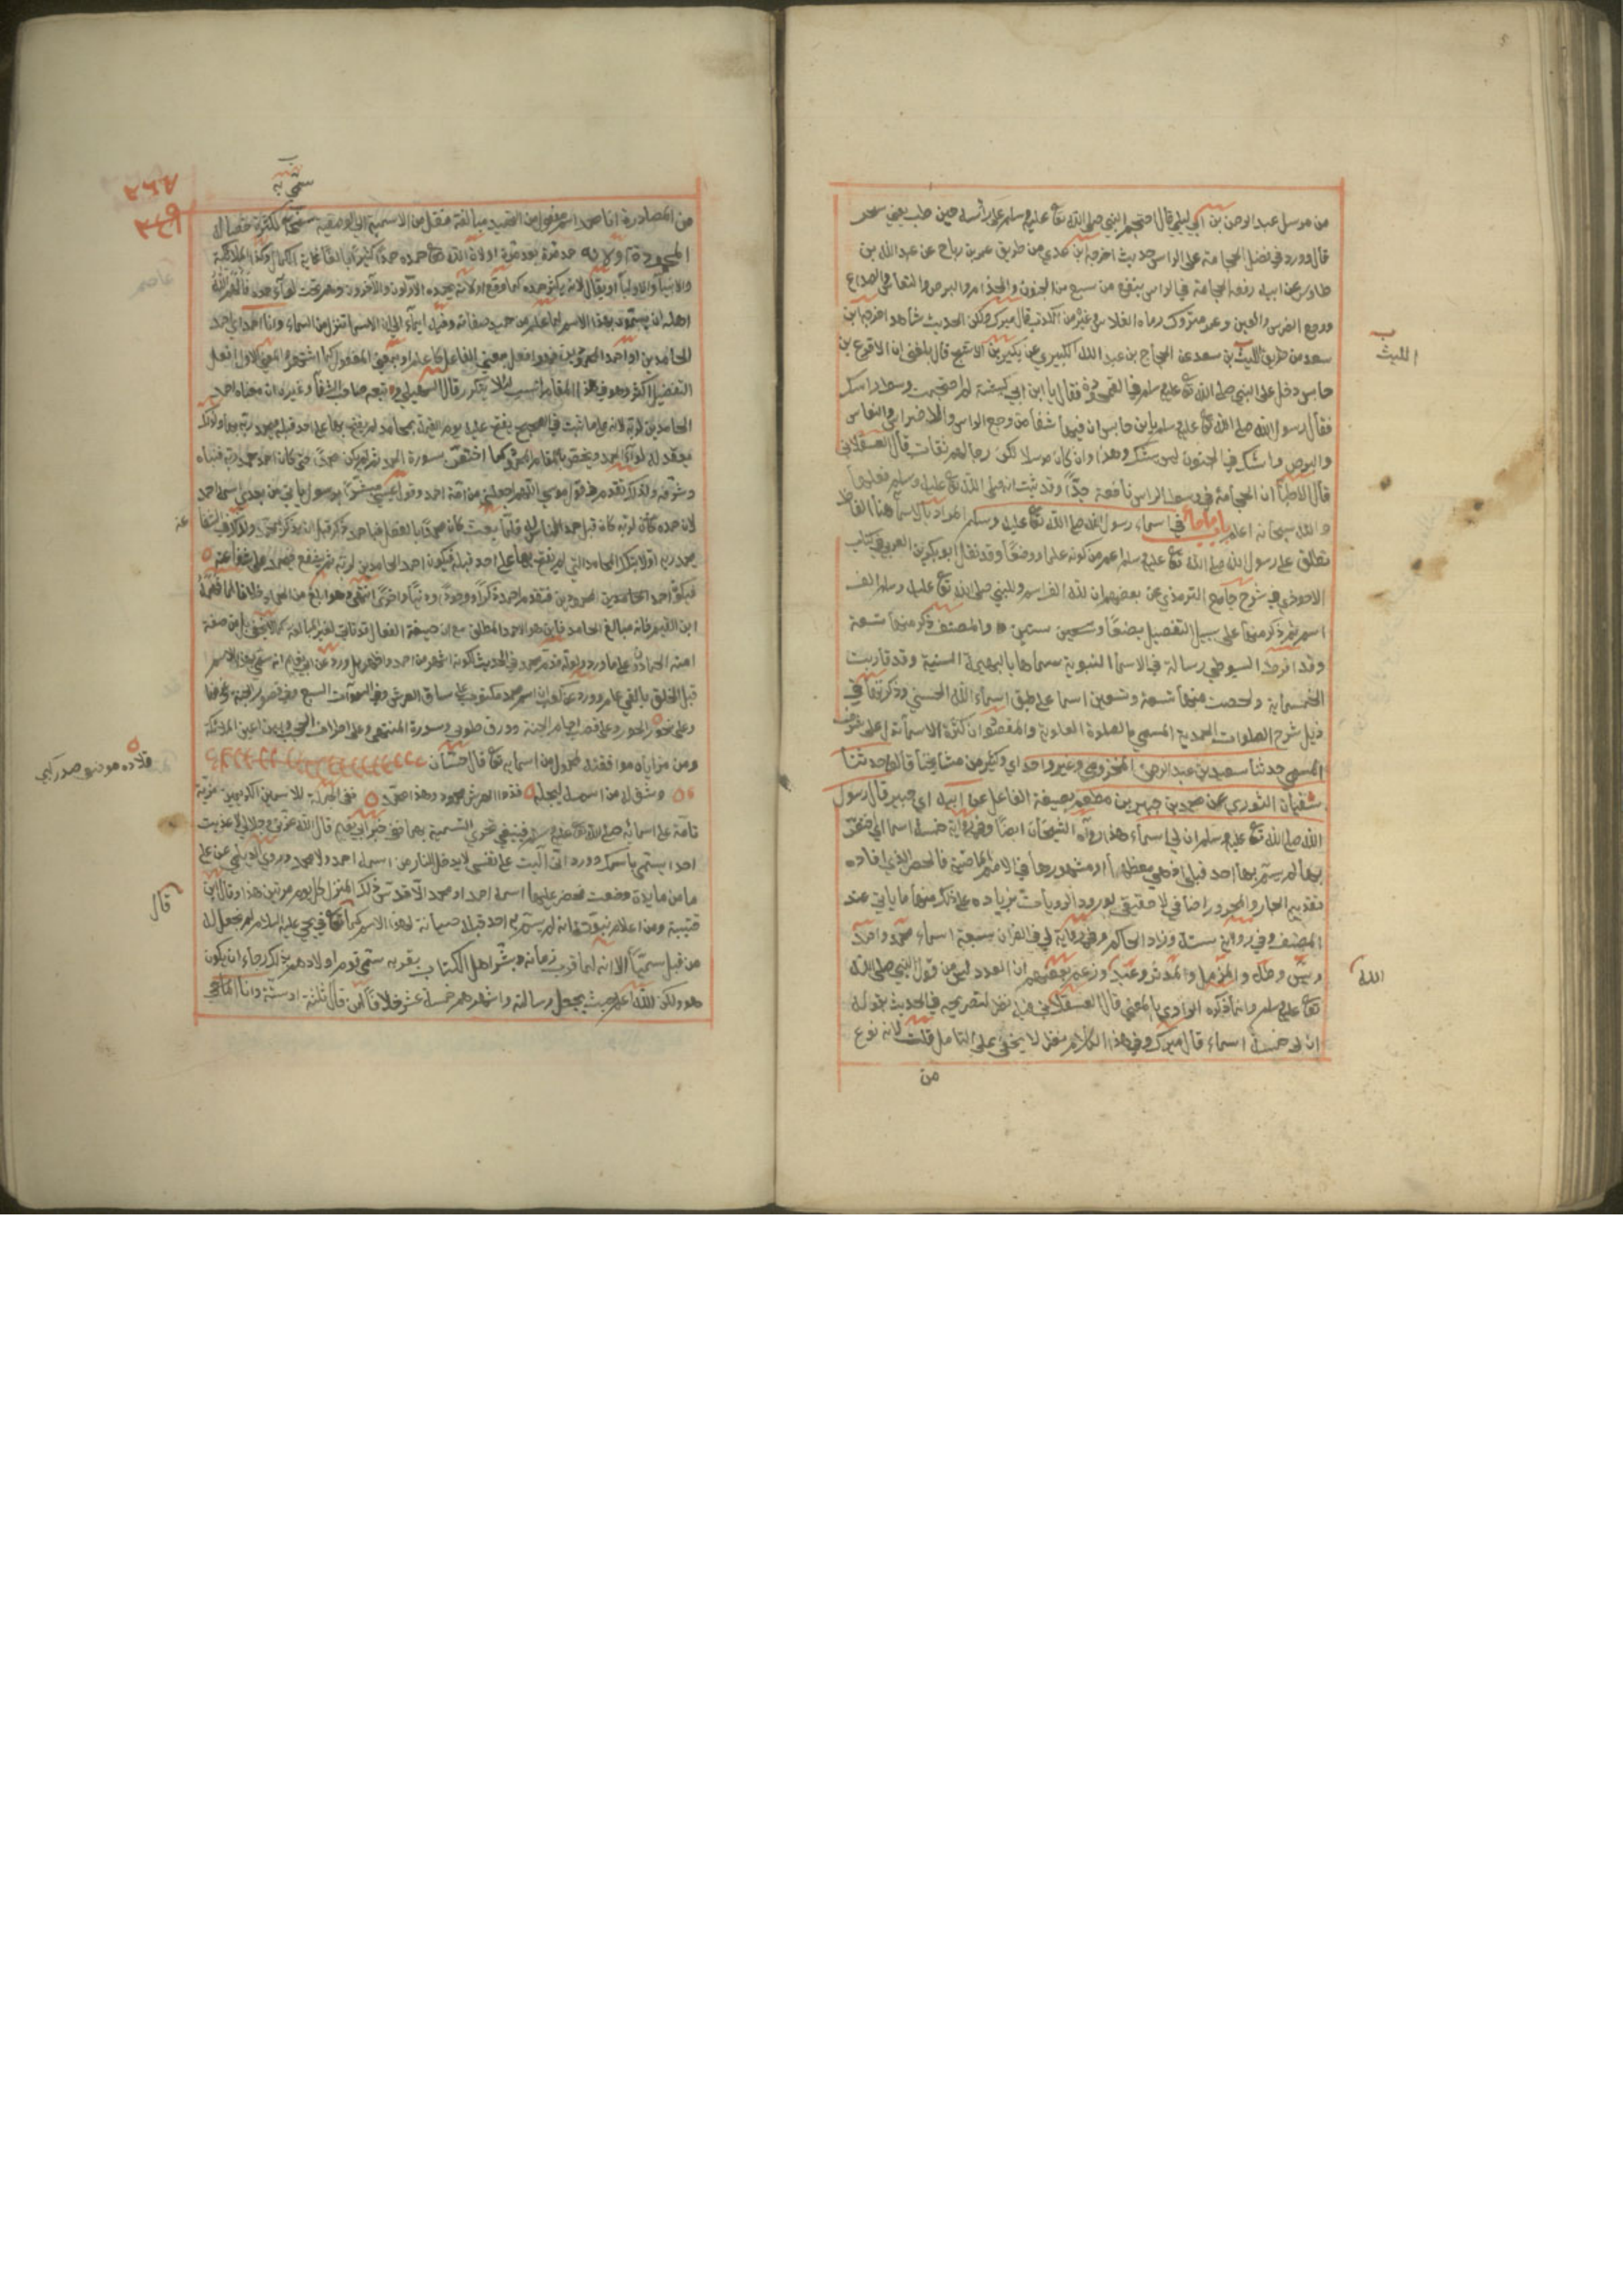 من مرسل عبد الرحمن بن ابي ليلى قال احتجم النبي صلى الله تع عليه وسلم على رأسه حين طب يعني سحر
قال وورد في فضل الحجامة على الراس حديث اخرجه ابن عدي من طريق عمر بن رباح عن عبد الله بن
طاوس عن ابيه رفعه الحجامة في الراس ينفع من سبع من الجنون والجذام والبرص والنعاس والصداع
ووجع الضرس والعين وعمر متروك رماه الفلاس وغيره من الكذب قال ميرك ولكن الحديث شاهد اخرجه ابن
سعد من طريق الليث بن سعد عن الحجاج بن عبد الله الكبيري عن بكير بن الاشج قال بلغني ان الاقرع بن
حابس دخل على النبي صلى الله تع عليه وسلم في القمحدوة فقال يا ابن ابي كبشة لم احتجمت وسط راسك
فقال رسول الله صلى الله تع عليه وسلم يا بن حابس ان فيها شفأ من وجع الراس والاضراس والنعاس
والبرص واشك في الجنون ليس شك وهذا وان كان مرسلا لكن رجالهم ثقات قال العسقلاني
قال الاطبأ ان الحجامة في وسط الراس نافعة جدًا وقد ثبت انه صلى الله تع عليه وسلم فعلها
والله سبحانه اعلم باب ما جأ في اسماء رسول الله صلى الله تع عليه وسلم المراد بالاسمأ هنا الفاظ
تطلق على رسول الله صلى الله تع عليه وسلم اعم من كونه علما او وصفًا وقد نقل ابو بكر بن العربي في كتاب
الاحوذي في شرح جامع الترمذي عن بعضهم ان لله الف اسم وللنبي صلى الله تع عليه وسلم الف
اسم ثم ذكر منها على سبيل التفصيل بضعًا وستين والمصنف ذكر منها تسعة
وقد افرط السيوطي رسالة في الاسمأ النبوية سماها بالبهجة السنية وقد قاربت
الخمسماية ولخصت منها تسعة وتسعين اسما على طبق اسماء الله الحسنى وذكرتها في
ذيل شرح الصلوات المحمدية المسمى بالصلوة العلوية والمقصود ان كثرة الاسمأ تدل على شرف
المسمى حدثنا سعيد بن عبد الرحمن المخزومي وغير واحد اي وكثير من مشايخنا قالوا حدثنا
سفيان الثوري عن محمد بن جبير بن مطعم بصيغة الفاعل عن ابيه اي جبير قال رسول
الله صلى الله تع عليه وسلم ان لي اسماء هذا رواه الشيخان ايضا وفي رواية خمسة اسما اي اختص
بها لم يتسم بها احد قبلي او هي معظمها او مشهورها في الامم الماضية فالحصر الذي افاده
تقديم الجار والمجرور اضافي لا حقيقي لورود الروايات بزيادة على ذلك منها ما ياتي عند
المصنف وفي رواية ستة وزاد الحاكم وفي رواية لي في القران سبعة اسماء محمد واحمد
ويس وطه والمزمل والمدثر وعبد الله وزعم بعضهم ان العدد ليس من قول النبي صلى الله
تع عليه وسلم وانما ذكره الراوي بالمعنى قال العسقلاني فيه نظر لتصريحه في الحديث بقوله
ان لي خمسة اسماء قال ميرك وفي هذا الكلام نظر لا يخفى على المتامل قلت لانه نوع
من
الليث
الله
سمي به
٢٦٧
من المصادرة انا محمد اسم مفعول من التحميد مبالغة نقل من الاسمية الى الوصفية سمي به لكثرة خصاله
المحمودة او لانه حمد مرة بعد مرة او لان الله تع حمده حمدا كثيرًا بالغًا غاية الكمال وكذا الملائكة
والانبيأ والاوليأ او يقال لانه يكثر حمده كما وقع او لانه يحمده الاولون والاخرون وهم تحت لوآء حمده فالهم الله
اهله ان يسموه بهذا الاسم لما علم من حميد صفاته وفيه ايماء الى ان الاسما تنزل من السماء وانا احمد اي احمد
الحامدين او احمد المحمودين فهو افعل بمعنى الفاعل كاعلم او بمعنى المفعول كما اشتهر والمعنى الاول افعل
التفضيل اكثر وهو في هذا المقام انسب لئلا يتكرر قال السهيلي وتبعه صاحب الشفأ وغيره ان معناه احمد
الحامدين لربه لانه على ما ثبت في الصحيح يفتح عليه يوم القيمة بمحامد لم يفتح بها على احد قبله فيحمد ربه بها ولذلك
يعقد له لوآء الحمد ويخص بالمقام المحمود كما اختص بسورة الحمد ثم لم يكن محمدًا حتى كان احمد حمد ربه فنبأه
وشرفه ولذلك تقدم في قول موسى اللهم اجعلني من امة احمد وقول عيسى مبشرًا برسول ياتي من بعدي اسمه احمد
لان حمده لربه كان قبل حمد الناس له فلما بعث كان محمدًا بالفعل فباحمد ذكر قبل ان يذكر بمحمد وكذلك في الشفأ
عة
يحمد ربه اولا بتلك المحامد التي لم يفتح بها على احد قبله فيكون احمد الحامدين لربه ثم يشفع فيحمد على شفاعته
فيكون احمد الحامدين المحمودين فتقدم احمد ذكرًا ووجودًا ودنيًا واخرى انتهى وهو ابلغ من الحماد خلافا لما توهمه
ابن القيم فانه مبالغ الحامد فاين هو الاحمد المطلق مع ان صيغة الفعال قد تاتي لغير المبالغة كما لا يخفى من صفة
امته الحمادون على ما ورد ولعله قدم محمد في الحديث لكونه اشهر من احمد واظهر بل ورد عن ابي نعيم انه سمي بهذا الاسم
قبل الخلق بالفي عام وورد عن كعب ان اسم محمد مكتوب على ساق العرش وفي السموات السبع وفي قصور الجنة وغرفها
وعلى نحور الحور وعلى قصب اجام الجنة وورق طوبى وسدرة المنتهى وعلى اطراف الحجب وبين اعين الملائكة
ومن مزاياه موافقته لمحمود من اسمايه تع قال حسان
وشق له من اسمه ليجله فذو العرش محمود وهذا محمد
تامة على اسمائه صلى الله تع عليه وسلم فينبغي تحري التسمية بهما ففي خبر ابي نعيم قال الله وعزتي وجلالي لا عذبت
احدا يسمى باسمك وورد اني آليت على نفسي لا يدخل النار من اسمه احمد ولا محمد وروى الديلمي عن علي
ما من مايدة وضعت فحضر عليها من اسمه احمد او محمد الا قدس ذلك المنزل كل يوم مرتين هذا وقال ابن
قتيبة ومن اعلام نبوته انه لم يسم به احد قبله صيانة لهذا الاسم كما قال تع في يحيى عليه السلام لم نجعل له
من قبل سميًا الا انه لما قرب زمانه وبشر اهل الكتاب بقربه سمى قوم اولادهم بذلك رجاء ان يكون
هو ولكن الله اعلم حيث يجعل رسالته واشهرهم خمسة عشر خلافًا لمن قال ثلثة او ستة وانا الماحي
قلاده موضع صدركى
قال